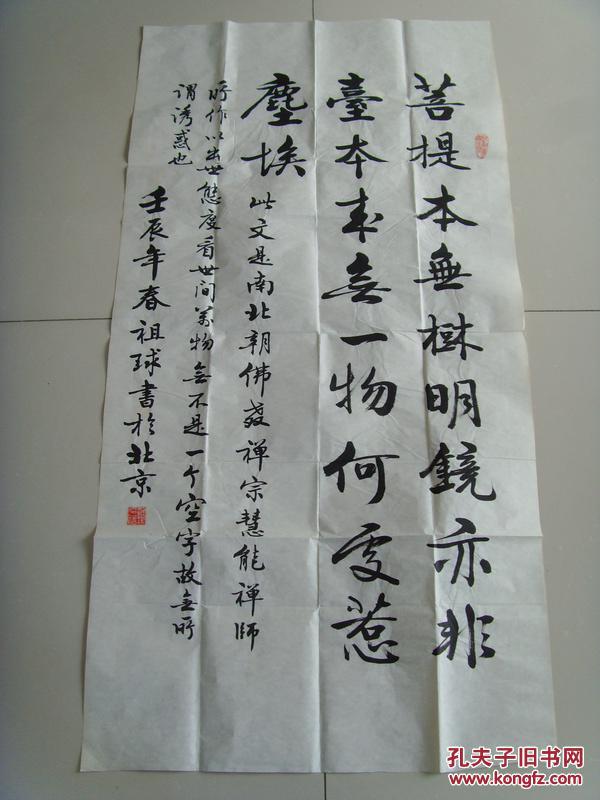 菩提本無樹明鏡亦非
臺本來無一物何處惹
塵埃
此文是南北朝佛教禪宗慧能禪師
所作以出世態度看世间萬物無不是一个空字故無所
谓诱惑也
壬辰年春祖球書於北京
孔夫子旧书网
www.kongfz.com